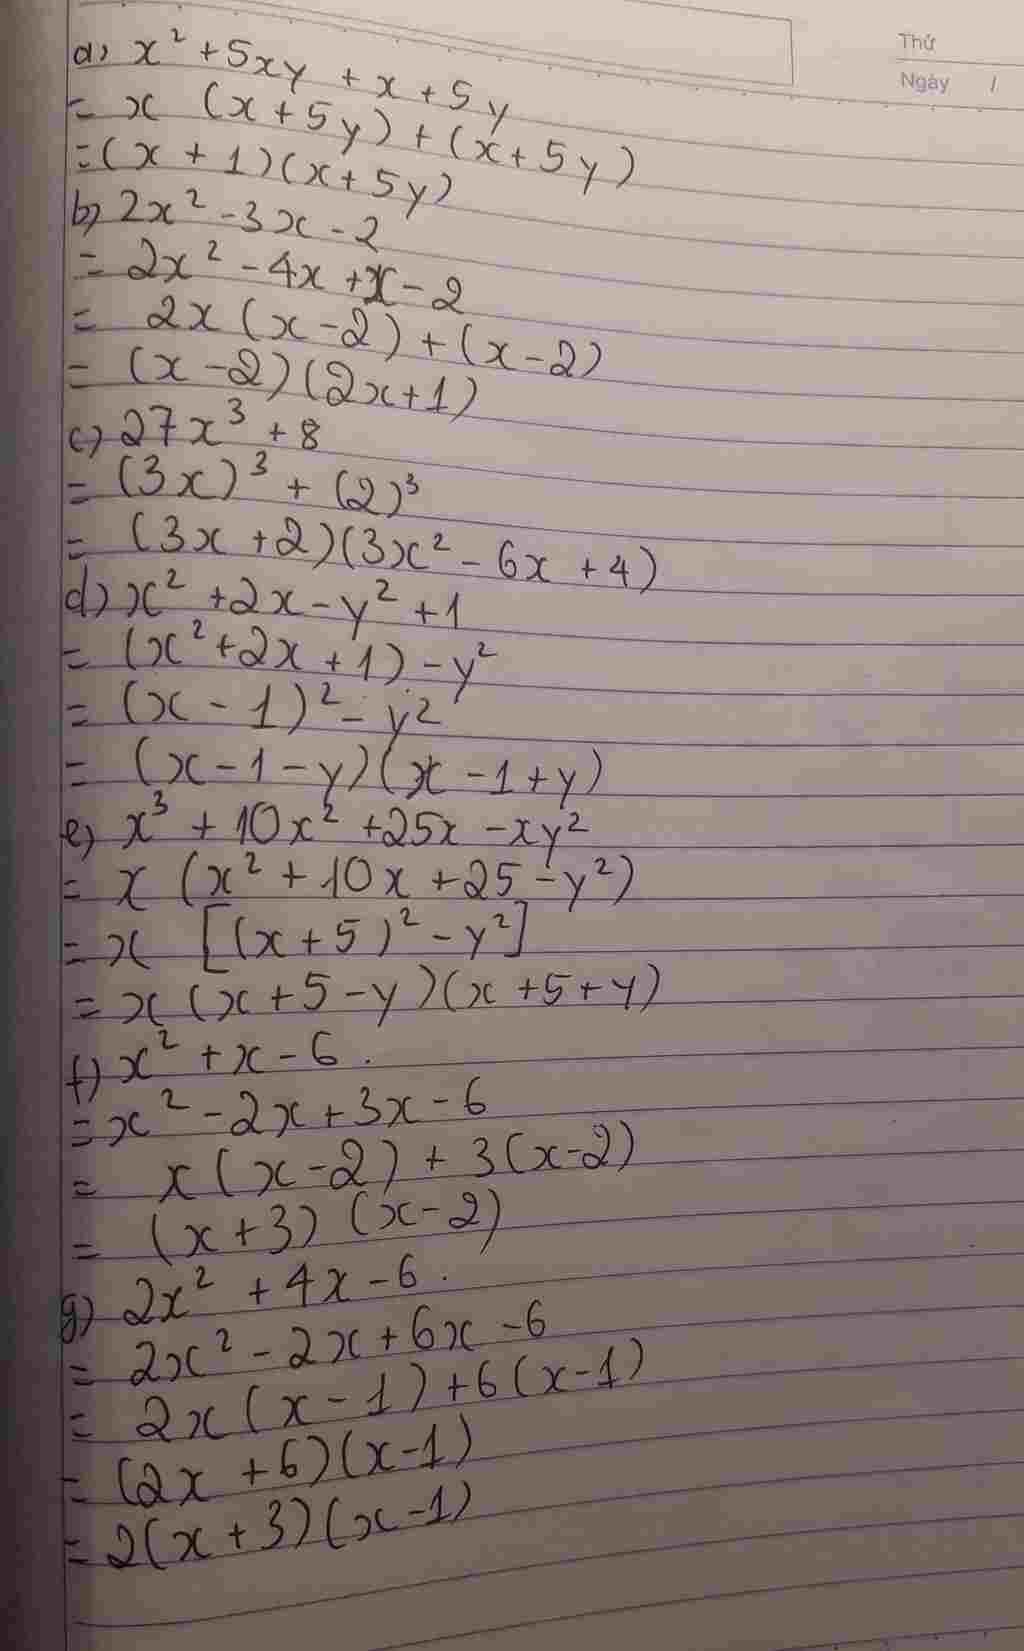 Thứ
Ngày /
a) x² + 5xy + x + 5y
= x (x + 5y) + (x + 5y)
= (x + 1)(x + 5y)
b) 2x² - 3x - 2
= 2x² - 4x + x - 2
= 2x (x - 2) + (x - 2)
= (x - 2)(2x + 1)
c) 27x³ + 8
= (3x)³ + (2)³
= (3x + 2)(3x² - 6x + 4)
d) x² + 2x - y² + 1
= (x² + 2x + 1) - y²
= (x - 1)² - y²
= (x - 1 - y)(x - 1 + y)
e) x³ + 10x² + 25x - xy²
= x (x² + 10x + 25 - y²)
= x [(x + 5)² - y²]
= x (x + 5 - y)(x + 5 + y)
f) x² + x - 6.
= x² - 2x + 3x - 6
= x (x - 2) + 3(x - 2)
= (x + 3) (x - 2)
g) 2x² + 4x - 6.
= 2x² - 2x + 6x - 6
= 2x (x - 1) + 6(x - 1)
= (2x + 6)(x - 1)
= 2(x + 3)(x - 1)